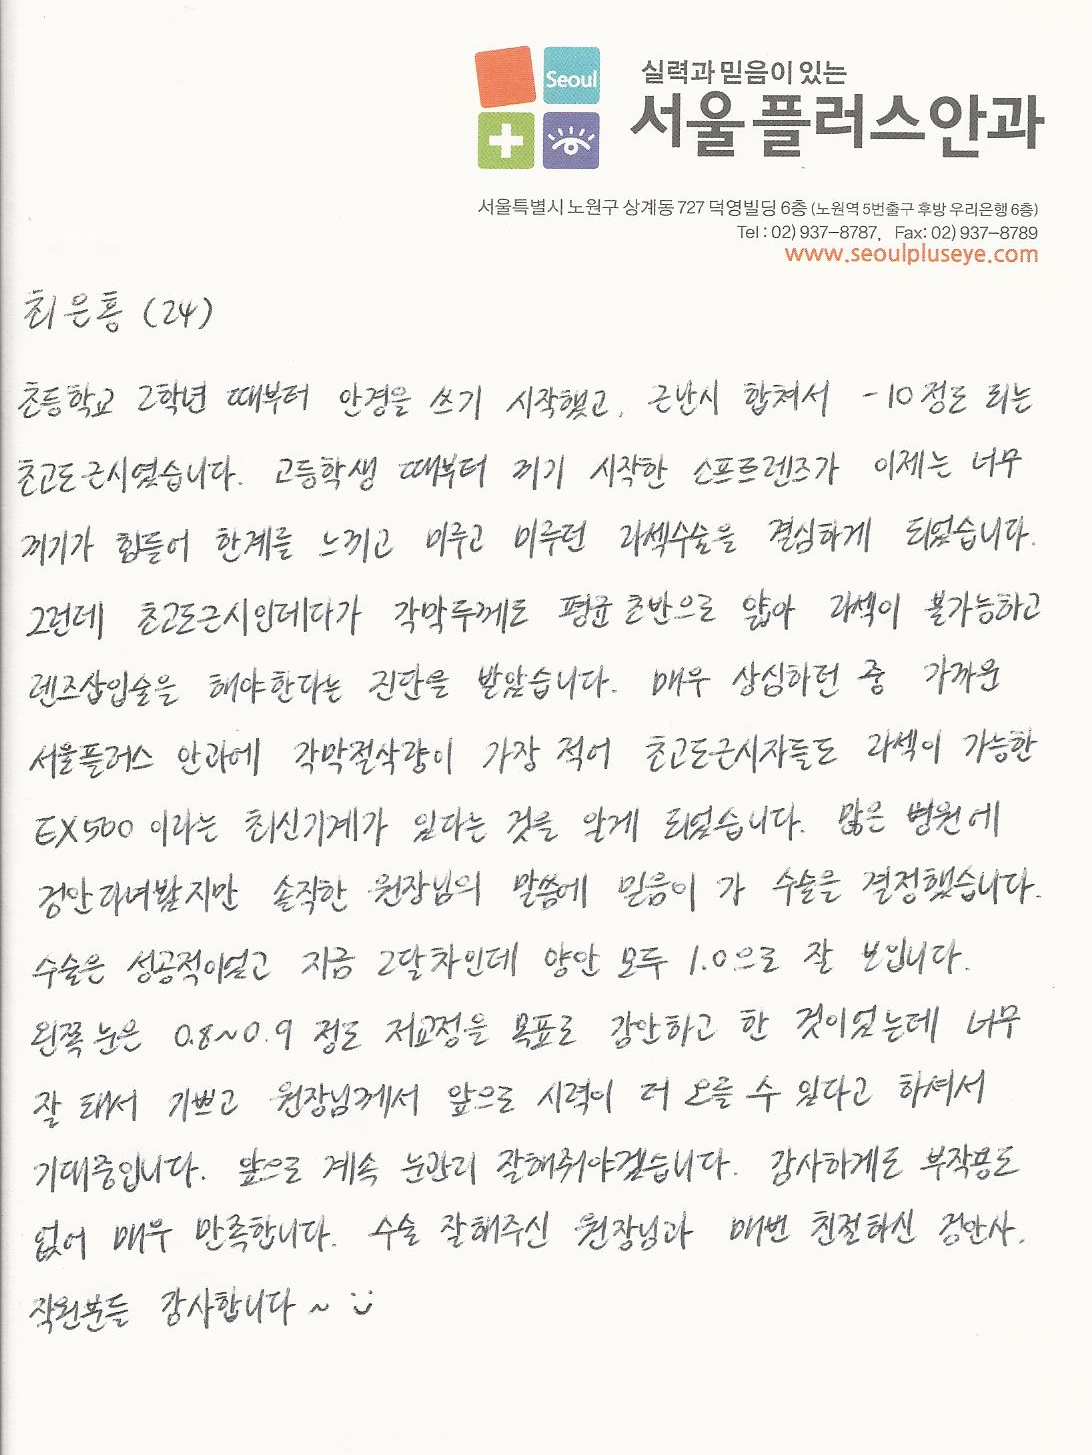 Seoul
실력과 믿음이 있는
서울플러스안과
서울특별시 노원구 상계동 727 덕영빌딩 6층 (노원역 5번출구 후방 우리은행 6층)
Tel : 02) 937-8787, Fax: 02) 937-8789
www.seoulpluseye.com
최은홍 (24)
초등학교 2학년 때부터 안경을 쓰기 시작했고, 근난시 합쳐서 -10정도 되는
초고도근시였습니다. 고등학생 때부터 끼기 시작한 소프트렌즈가 이제는 너무
끼기가 힘들어 한계를 느끼고 미루고 미루던 라섹수술을 결심하게 되었습니다.
그런데 초고도근시인데다가 각막두께도 평균 초반으로 얇아 라섹이 불가능하고
렌즈삽입술을 해야한다는 진단을 받았습니다. 매우 상심하던 중 가까운
서울플러스 안과에 각막절삭량이 가장 적어 초고도근시자들도 라섹이 가능한
EX500 이라는 최신기계가 있다는 것을 알게 되었습니다. 많은 병원에
검안다녀봤지만 솔직한 원장님의 말씀에 믿음이 가 수술을 결정했습니다.
수술은 성공적이었고 지금 2달차인데 양안 모두 1.0으로 잘 보입니다.
왼쪽 눈은 0.8~0.9 정도 저교정을 목표로 감안하고 한 것이었는데 너무
잘 돼서 기쁘고 원장님께서 앞으로 시력이 더 오를 수 있다고 하셔서
기대중입니다. 앞으로 계속 눈관리 잘해줘야겠습니다. 감사하게도 부작용도
없어 매우 만족합니다. 수술 잘해주신 원장님과 매번 친절하신 검안사,
직원분들 감사합니다~